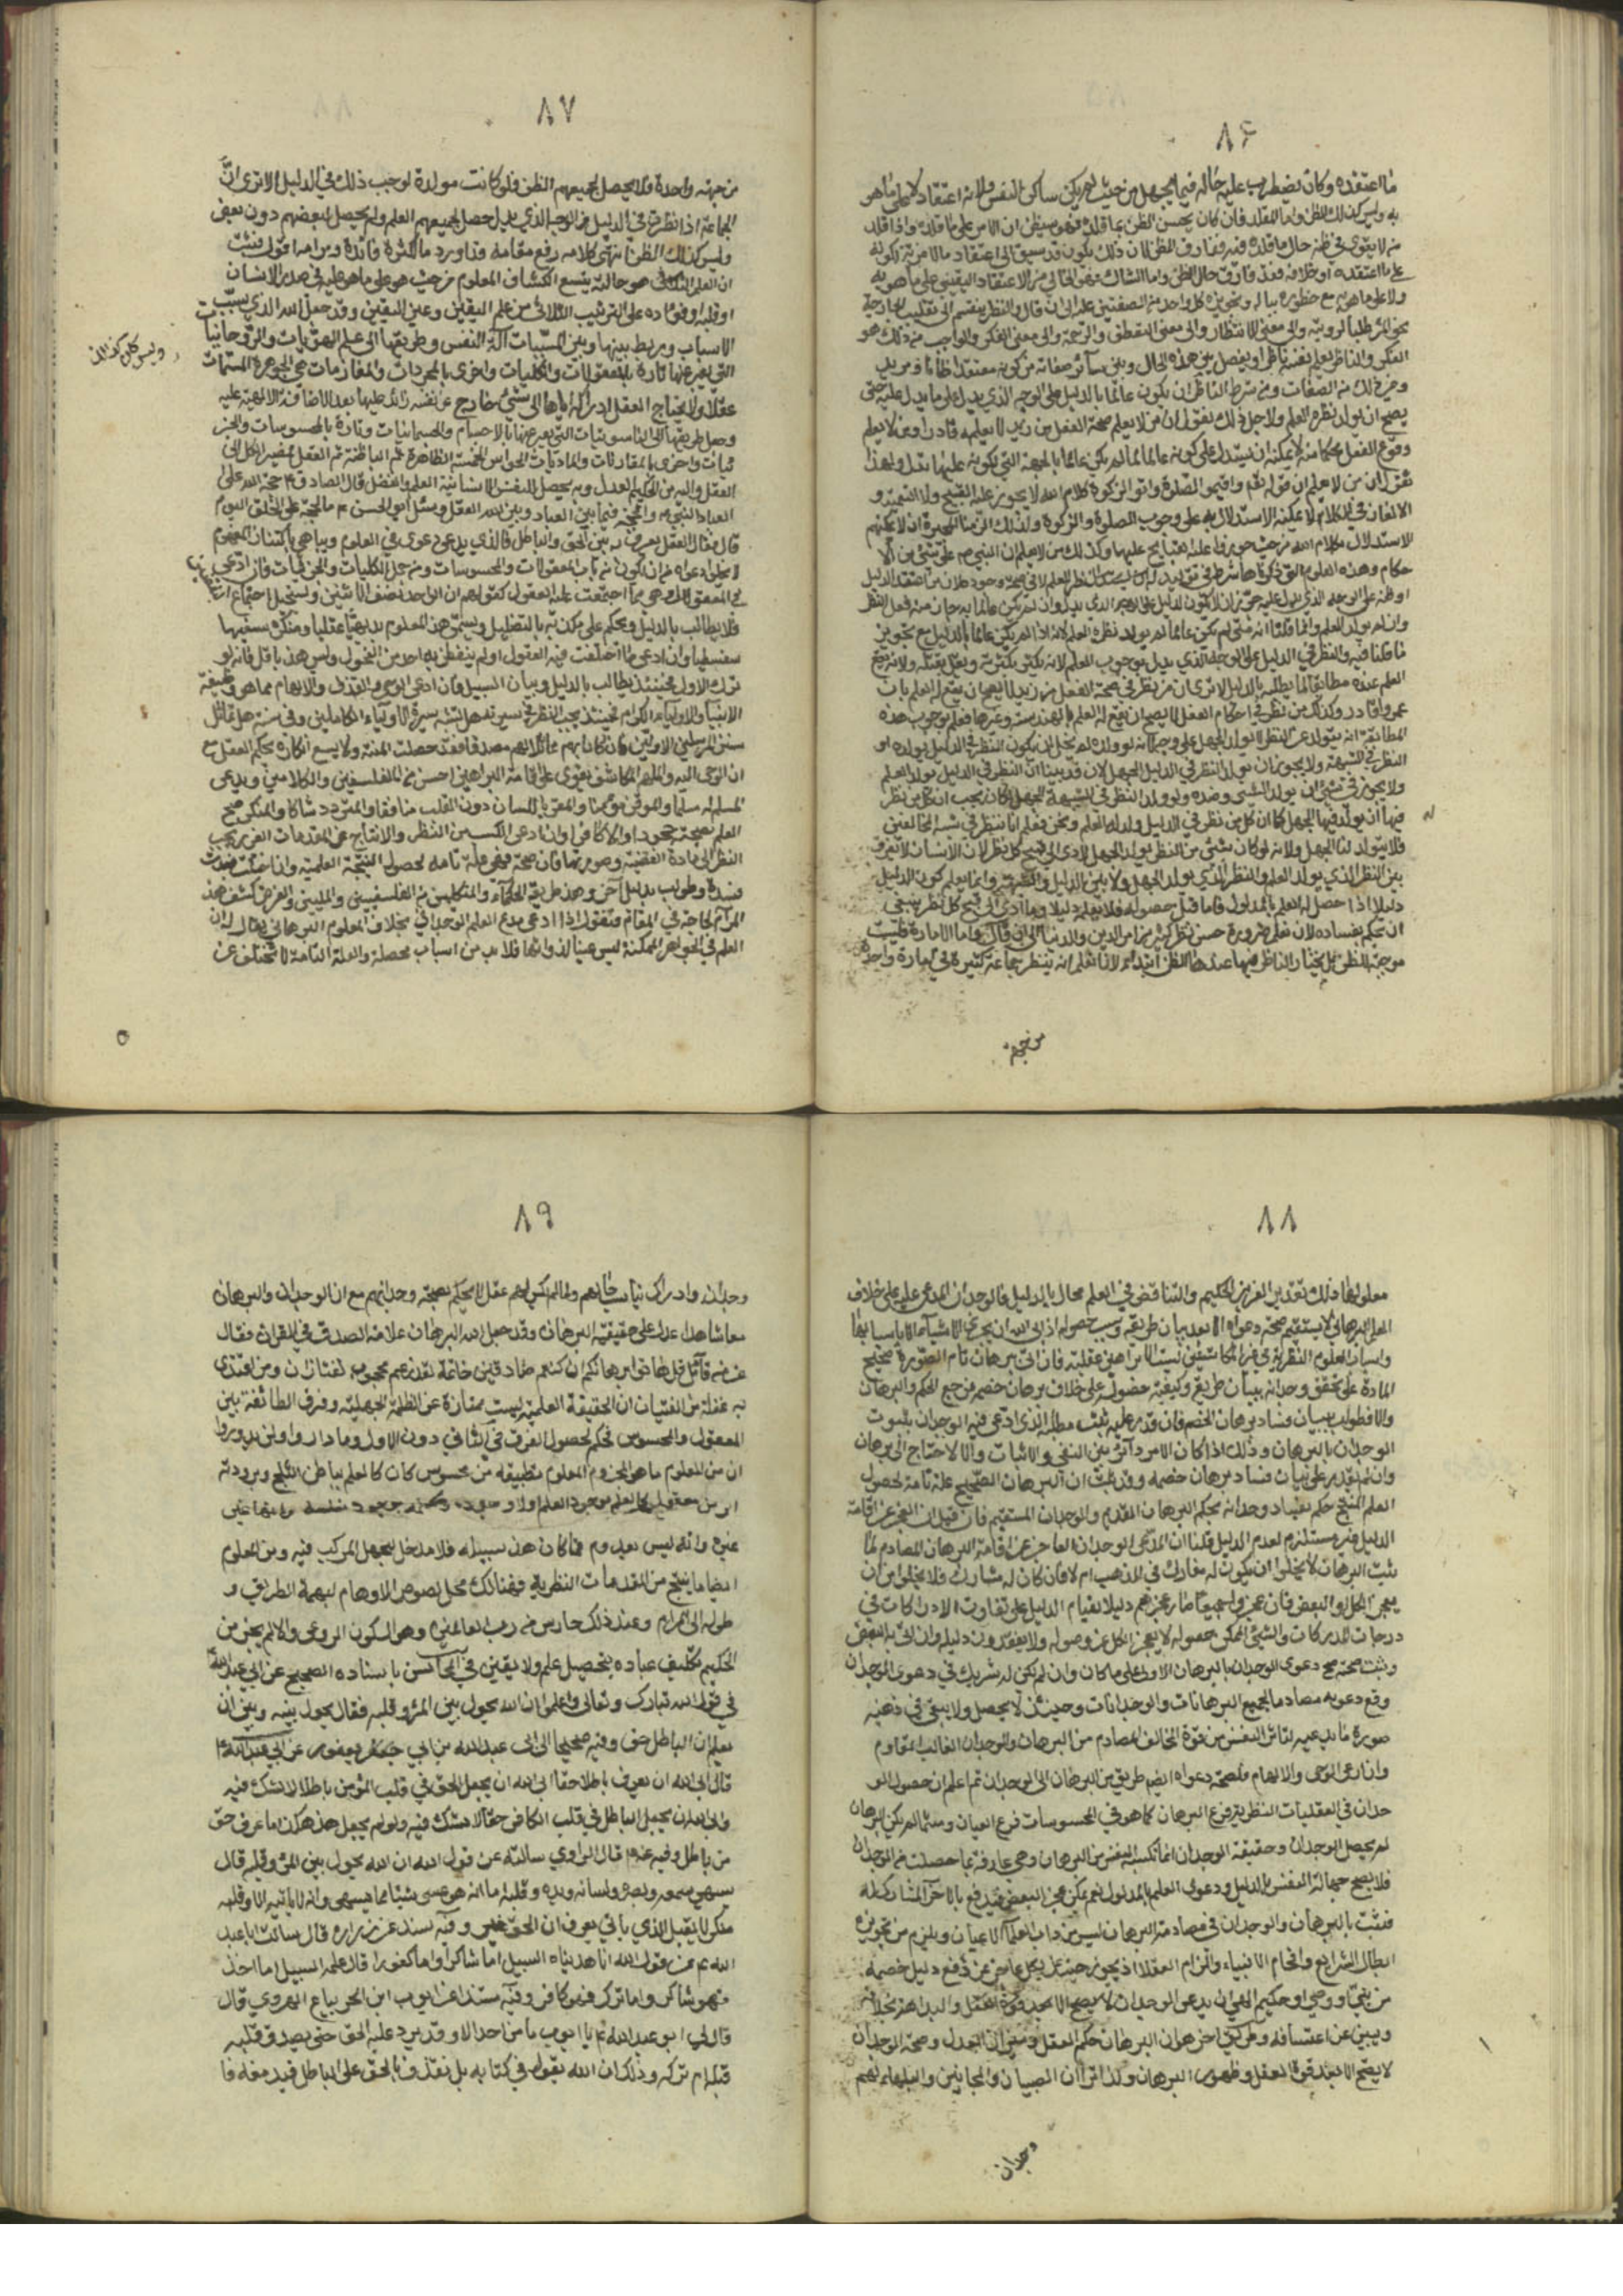 ٨٦
ما اعتقده وكان يضطرب عليه حاله فيما يجهل من حيث لم يكن ساكن النفس ولانه اعتقاد لا على ما هو
به وليس كذلك الظن واما المقلد فان كان يحسن الظن بما قلده فهو سيظن ان الامر على ما قلده واذا قلد
من لا يقوى في ظنه حال ما قلده فيه ففارق الظن لان ذلك يكون قد سبق الى اعتقاد ما لا مزية لكونه
على ما اعتقده او خلافه فقد فارق حال الظن واما الشاك فهو الخالي من الاعتقاد اليقيني على ما هو به
ولا على ما هو به مع خطوره بباله وتجويزه كل واحد من الصفتين عليه الى ان قال والنظر ينقسم الى تقليب الجارحة
نحو المرئي طلبا لرؤيته والى معنى الانتظار والى معنى التعطف والرحمة والى معنى الفكر والواجب من ذلك هو
الفكر والناظر يعلم نفسه ناظرا ويفصل بين هذه الحال وبين سائر صفاته من كونه معتقدا ظانا ومريدا
وغير ذلك من الصفات ومن شرط الناظر ان يكون عالما بالدليل على الوجه الذي يدل على ما يدل عليه حتى
يصح ان يولد نظره العلم ولاجل ذلك نقول ان من لا يعلم صحة الفعل من زيد لا يعلمه قادرا ومن لا يعلم
وقوع الفعل محكما منه لا يمكنه ان يستدل على كونه عالما لما لم يكن عالما بالجهة التي لكونه عليها يدل ولهذا
نقول ان من لا يعلم ان قوله تعالى واقيموا الصلوة واتوا الزكوة كلام الله لا يجوز عليه القبيح ولا التعمية و
الالغاز في الكلام لا يمكنه الاستدلال به على وجوب الصلوة والزكوة ولذلك الزمنا المجبرة ان لا يمكنهم
الاستدلال بكلام الله من حيث جوزوا عليه القبايح كلها وكذلك من لا يعلم ان النبي ص على شيء من الا
حكام وهذه العلوم التي ذكرناها شرط في توليد النظر للعلم لا في صحة وجوده لان من اعتقد الدليل
ما قلنا فيه والنظر في الدليل على الوجه الذي يدل يوجب العلم لانه يكثر بكثرته ويقل بقلته ولانه يقع
العلم عنده مطابقا لما يطلبه بالدليل الا ترى ان من نظر في صحة الفعل من زيد لا يصح ان يقع له العلم بان
عمروا قادر وكذلك من نظر في احكام الفعل لا يصح ان يقع له العلم بالهندسة وغيرها فعلم بوجوب هذه
المطابقة انه يتولد عن النظر
النظر في الشبهة ولا يجوز ان يولد النظر في الدليل الجهل لان قد بينا ان النظر في الدليل يولد العلم
ولا يجوز في شيء ان يولد الشيء وضده ولو ولد النظر في الشبهة الجهل لكان يجب ان كل من نظر
فيها ان يولد فيها الجهل كما ان كل من نظر في الدليل ولد له العلم ونحن نعلم انا ننظر في شبه المخالفين
فلا يتولد لنا الجهل ولانه لو كان شيء من النظر يولد الجهل لادى الى قبح كل نظر لان الانسان لا يفرق
بين النظر الذي يولد العلم والنظر الذي يولد الجهل ولا بين الدليل والشبهة وانما يعلم كون الدليل
دليلا اذا حصل له العلم بالمدلول فاما قبل حصوله فلا يعلمه دليلا وما ادى الى قبح كل نظر ينبغي
ان يحكم بفساده لان نعلم ضرورة حسن نظر كثير من امر الدين والدنيا الى ان قال واما الامارة فليست
موجبة للظن بل يختار الناظر فيها عندها الظن ابتداء لانا نعلم انه ينظر جماعة كثيرة في امارة واحدة
من جهة
٨٧
من جهة واحدة فلا يحصل لجميعهم الظن فلو كانت مولدة لوجب ذلك في الدليل الا ترى ان
الجماعة اذا نظرت في الدليل من الوجه الذي يدل حصل لجميعهم العلم ولم يحصل لبعضهم دون بعض
وليس كذلك الظن انتهى كلامه رفع مقامه
اوقلبه وفؤاده على الترتيب الثلاثي من علم اليقين وعين اليقين وقد جعل الله الذي سبب
الاسباب وربط بينها وبين المسببات آلة النفس وطريقها الى علم الهويات والروحانيات
التي يعبر عنها تارة بالمعقولات والكليات واخرى بالمجردات والمفارقات هي الجوهرة المسماة
عقلا ولا يحتاج العقل ادراكه اياها الى شيء خارج عن نفسه زائد عليها بعد الاضافة الالهية عليه
وجعل طريقها الى الناسوتيات التي يعبر عنها بالاجسام والجسمانيات وتارة بالمحسوسات والجز
ئيات واخرى بالمقارنات والماديات الحواس الخمسة الظاهرة ثم الباطنة ثم العقل فمصير الكل الى
العقل واليه من الحكيم العدل وبه يحصل للنفس الانسانية العلم والفضل قال الصادق ع حجة الله على
العباد النبي ص والحجة فيما بين العباد وبين الله العقل وسئل ابو الحسن ع ما الحجة على الخلق اليوم
قال فقال العقل يعرف به بين الحق والباطل فالذي يدعي دعوى في العلوم ويباهي باكتساب المفهوم
لا يخلو دعواه من ان يكون من باب المعقولات والمحسوسات ومن جمل الكليات والجزئيات فان ادعى
فلا يطالب بالدليل ويحكم على مكذبه بالتضليل ويسمى هذا المعلوم بديهيا عقليا ومنكره سفيها
سفسطيا وان ادعى ما اختلفت فيه العقول
ترك الاول فحينئذ يطالب بالدليل وبيان السبيل وان ادعى الوحي والقذف والالهام مما هو وظيفة
الانبياء والاولياء الكرام فحينئذ يجب النظر في سيرته هل تشبه سيرة الاولياء الكاملين وفي سنته هل تماثل
سنن المرسلين الاولين فان كان بهم مماثلا لهم مصدقا فقد حصلت المنة ولا يسع انكاره بحكم العقل مع
ان الوحي اليه والملهم المكاشف يقوى على اقامة البراهين احسن من الفلسفيين والكلاميين ويدعى
المسلم له مسلما والموقن مؤمنا والمقر باللسان دون القلب منافقا والمتردد شاكا والمنكر مع
العلم بصحته جحودا والا كافرا وان ادعى الكسب من النظر والانتاج عن المقدمات الغير يجب
النظر الى مادة القضية وصورتها فان صحة فهي علة تامة لحصول النتيجة العلمية وان اختلت
وطولب بدليل آخر وهذه طريقة الحكماء والمتكلمين من الفلسفيين والمليين والغرض كشف هذه
المرام لحاجته في المقام فنقول اذا ادعى مدع العلم الوجداني بخلاف المعلوم البرهاني يقال له ان
العلم في الجواهر الممكنة ليس عينا لذواتها فلا بد من اسباب محصلة والعلة التامة لا تتخلف عن
وليس كان كذلك
٨٨
معلولها ذلك تقدير العزيز الحكيم والتناقض في العلم محال بالدليل فالوجدان المدعى عليه على خلاف
العلم البرهاني لا يستقيم صحة دعواه الا بعد بيان طريقه وسبب حصوله اذ ابى الله ان يجري الاشياء الا باسبابها
واسباب العلوم النظرية في غير المكاشفين ليست الا براهين عقلية فان اتى ببرهان تام الصورة صحيح
المادة على تحقق وجدانه ببيان طريقه وكيفية حصوله على خلاف برهان خصمه من جمع الحكم والبرهان
والا فطولب ببيان فساد برهان الخصم فان قدر عليه ثبت مطلبه الذي ادعى فيه الوجدان بثبوت
الوجدان بالبرهان وذلك اذا كان الامر دآئرا بين النفي والاثبات والا لاحتاج الى برهان
وان لم يقدر على بيان فساد برهان خصمه وقد ثبت ان البرهان الصحيح علة تامة لحصول
العلم المنتج حكم بفساد وجدانه بحكم البرهان القديم والوجدان المستقيم فان قيل ان العجز عن اقامة
الدليل غير مستلزم لعدم الدليل قلنا ان المدعي الوجدان العاجز عن اقامة البرهان المصادم لما
يثبت البرهان لا يخلو ان يكون له مشارك في المذهب ام لا فان كان له مشارك فلا يخلو من ان
يعجز الكل او البعض فان عجزوا جميعا صار عجزهم دليلا بقيام الدليل على تفاوت الادراكات في
درجات المدركات والشيء الممكن حصوله لا يعجز الكل عن وصوله ولا يفقدون دليله وان اتى به البعض
وثبت صحة دعوى الوجدان بالبرهان الاول على ما كان وان لم يكن له شريك في دعوى الوجدان
وقع دعوته مصادما لجميع البرهانات والوجدانات وحينئذ لا يحصل ولا يبقى في ذهنه
صورة ما يدعيه لتاثر النفس من قوة المخالف المصادم من البرهان والوجدان الغالب المقاوم
وان ادعى الوحي والالهام فلصحة دعواه ايضا طريق من البرهان الى الوجدان ثم اعلم ان حصول الو
جدان في العقليات النظرية فرع البرهان كما هو في المحسوسات فرع العيان ومتى لم يكن البرهان
لم يحصل الوجدان وحقيقة الوجدان انما تكسبه النفس من البرهان وهي عارفة بما حصلت من الوجدان
فلا يصح جهالة النفس بالدليل ودعوى العلم بالمدلول نعم يمكن عجز البعض فيدفع بالآخر المشارك له
فثبت بالبرهان والوجدان في مصادمة البرهان ليس من داب العلماء الاعيان ويلزم من تجويزه
ابطال الشرايع وافحام الانبياء والزام العقلا اذ يجوز حينئذ لكل عاجز عن دفع دليل خصمه
من نبي او وصي او حكيم الهي ان يدعي الوجدان
ويبين عن اعتسافه وطريق اخر هو ان البرهان حكم العقل وميزان العدل وصحة الوجدان
لا يصح الا بعد قوة العقل وظهور البرهان ولذا ترى ان الصبيان والمجانين والبلهاء لهم
وجدان
٨٩
وجدان وادراك بنيات خالهم ولما لم يكن لهم عقل لا يحكم بصحة وجدانهم مع ان الوجدان والبرهان
معا شاهدا عدل على حقيقة البرهان وقد جعل الله البرهان علامة الصدق في القرآن فقال
عز من قائل قل هاتوا برهانكم ان كنتم صادقين خاتمة لقد زعم محجوب تفتازان ومن اقتدى
به غفلة من الفتيان ان الحقيقة العلمية ليست ممتازة عن الظلمة الجهلية وفرق الطائفة بين
المعقول والمحسوس فحكم لحصول الفرق في الثاني دون الاول وما داروا ولن يدوروا
ان من المعلوم ما هو المجزوم المعلوم تطبيقه من محسوس كان كالعلم ببياض الثلج وبرودته
او من معقول كالعلم بوجود العلم اولا وجوده
غيره وانه ليس بمعدوم فما كان هذا سبيله فلا مدخل للجهل المركب فيه ومن المعلوم
ايضا ما ينتج من المقدمات النظرية فهنالك محل لصوص الاوهام لبهمة الطريق و
طوله الى المرام وعند ذلك حارس من رب العالمين وهو السكون الروعي والا لم يجز من
الحكيم تكليف عباده بتحصيل علم ولا يقين في المحاسن باسناده الصحيح عن ابي عبد الله ع
في قول الله تبارك وتعالى واعلموا ان الله يحول بين المرء وقلبه فقال يحول بينه وبين ان
يعلم ان الباطل حق وفيه صحيحا الى ابي عبد الله بن ابي جعفر يعفور عن ابي عبد الله ع
قال ابى الله ان يعرف باطلا حقا ابى الله ان يجعل الحق في قلب المؤمن باطلا لا شك فيه
وابى الله ان يجعل الباطل في قلب الكافر حقا لا شك فيه ولو لم يجعل هذا هكذا ما عرف حق
من باطل وفيه عنه قال الراوي سالته عن قول الله ان الله يحول بين المرء وقلبه قال
يشتهي سمعه وبصره ولسانه ويده وقلبه اما انه هو عسى شيئا مما يشتهي وانه لا ياتيه الا وقلبه
منكر لا يقبل الذي ياتي يعرف ان الحق غيره وفيه بسند عن زراره قال سالت ابا عبد
الله ع عن قول الله انا هديناه السبيل اما شاكرا واما كفورا قال علمه السبيل اما اخذ
فهو شاكر واما ترك فهو كافر وفيه مسندا عن ايوب ابن الحر بياع الهروي قال
قال لي ابو عبد الله ع يا ايوب ما من احد الا وقد يرد عليه الحق حتى يصدع قلبه
قبله ام تركه وذلك ان الله يقول في كتابه بل نقذف بالحق على الباطل فيدمغه فا